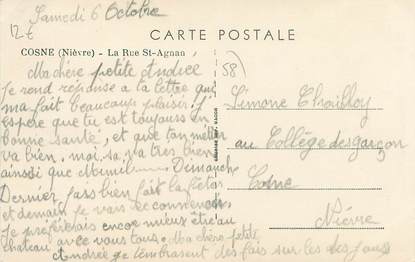 Samedi 6 Octobre
12€
CARTE POSTALE
COSNE (Nièvre) - La Rue St-Agnan
58
Ma chère petite Andrée
Je rond réponse a la lettre qui
ma fait beaucoup plaisir. J'
espère que tu est toujours en
bonne santé, et que ton métier
va bien. moi, sa va très bien
ainssi que Mimil. Dimanche
Dernier, jais bien fait la fete
et demain je vais recommencer.
Je préfèrerais encor mieux être au
chateau avec vous tous. Ma chère petite
Andrée je t'embrasent des fois sur les des joues
Simone
au Collège des garçon
Cosne
Nièvre